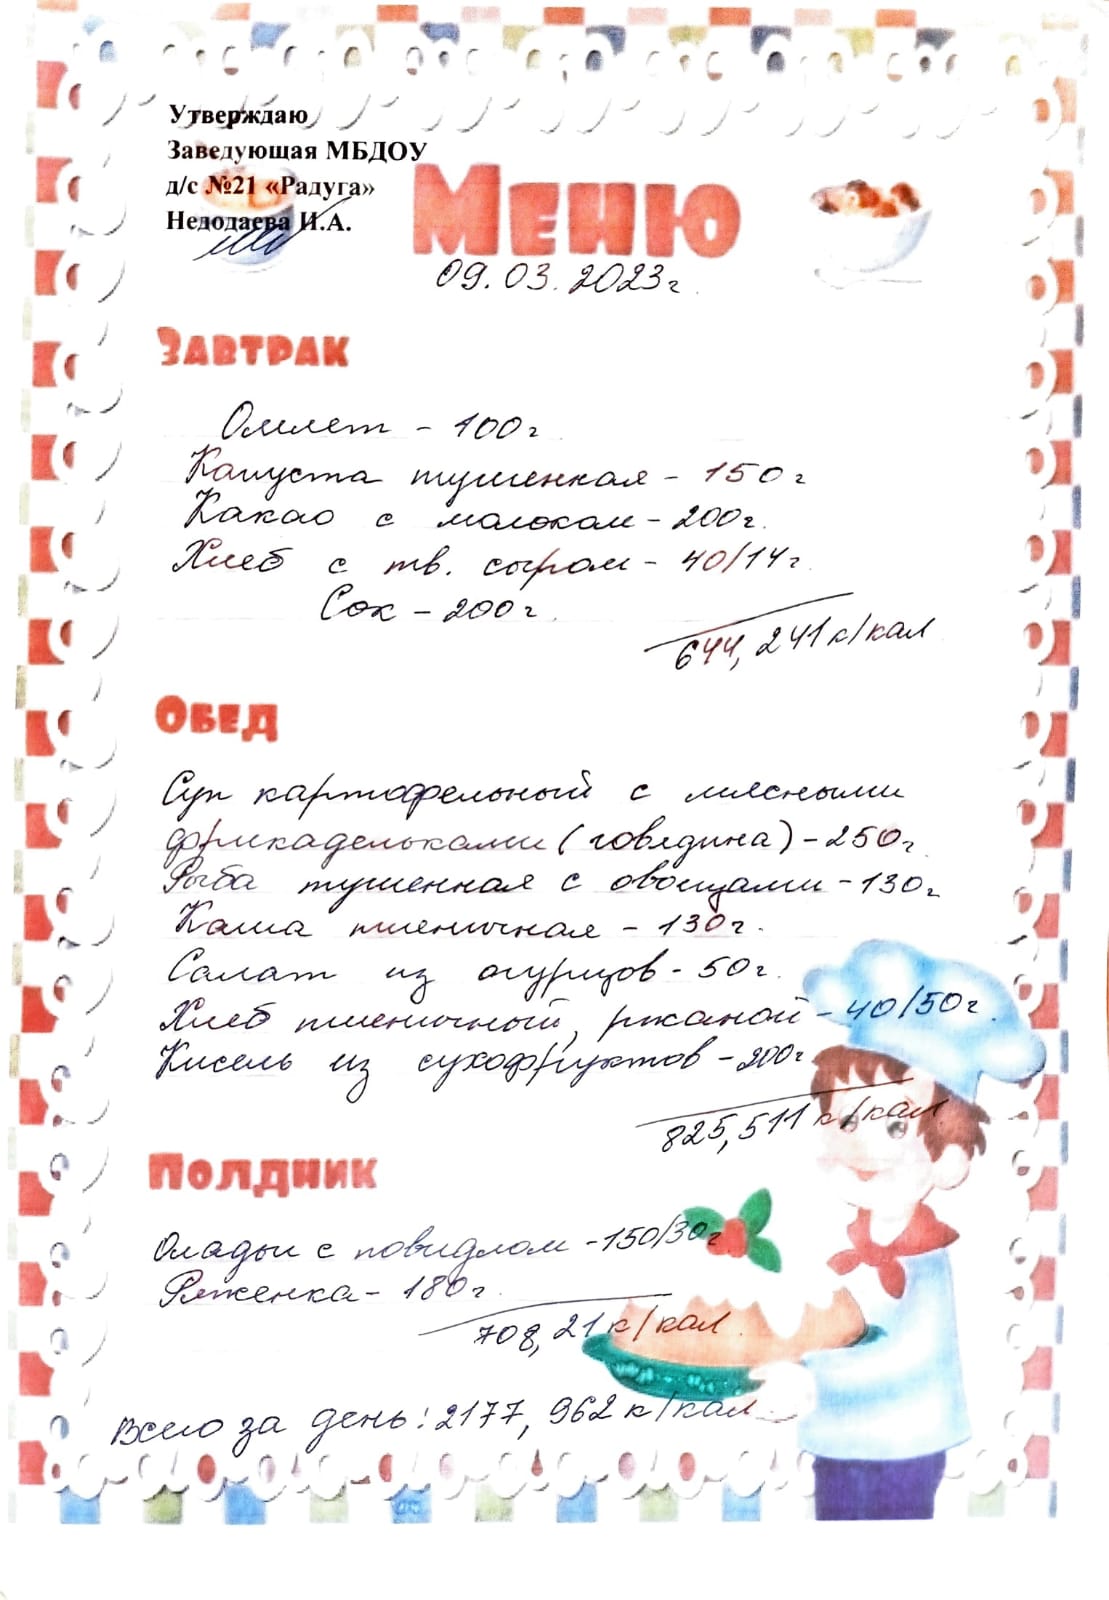 Утверждаю
Заведующая МБДОУ
д/с №21 «Радуга»
Недодаева И.А.
Меню
09.03.2023г.
Завтрак
Омлет - 100г.
Капуста тушенная - 150г
Какао с молоком - 200г.
Хлеб с тв. сыром - 40/14г.
Сок - 200г.
644,241 к/кал
Обед
Суп картофельный с мясными
фрикадельками (говядина) - 250г.
Рыба тушенная с овощами - 130г
Каша пшеничная - 130г.
Салат из огурцов - 50г.
Хлеб пшеничный, ржаной - 40/50г.
Кисель из сухофруктов - 200г
825,511 к/кал
Полдник
Оладьи с повидлом - 150/30г
Ряженка - 180г.
708,21 к/кал
Всего за день: 2177,962 к/кал